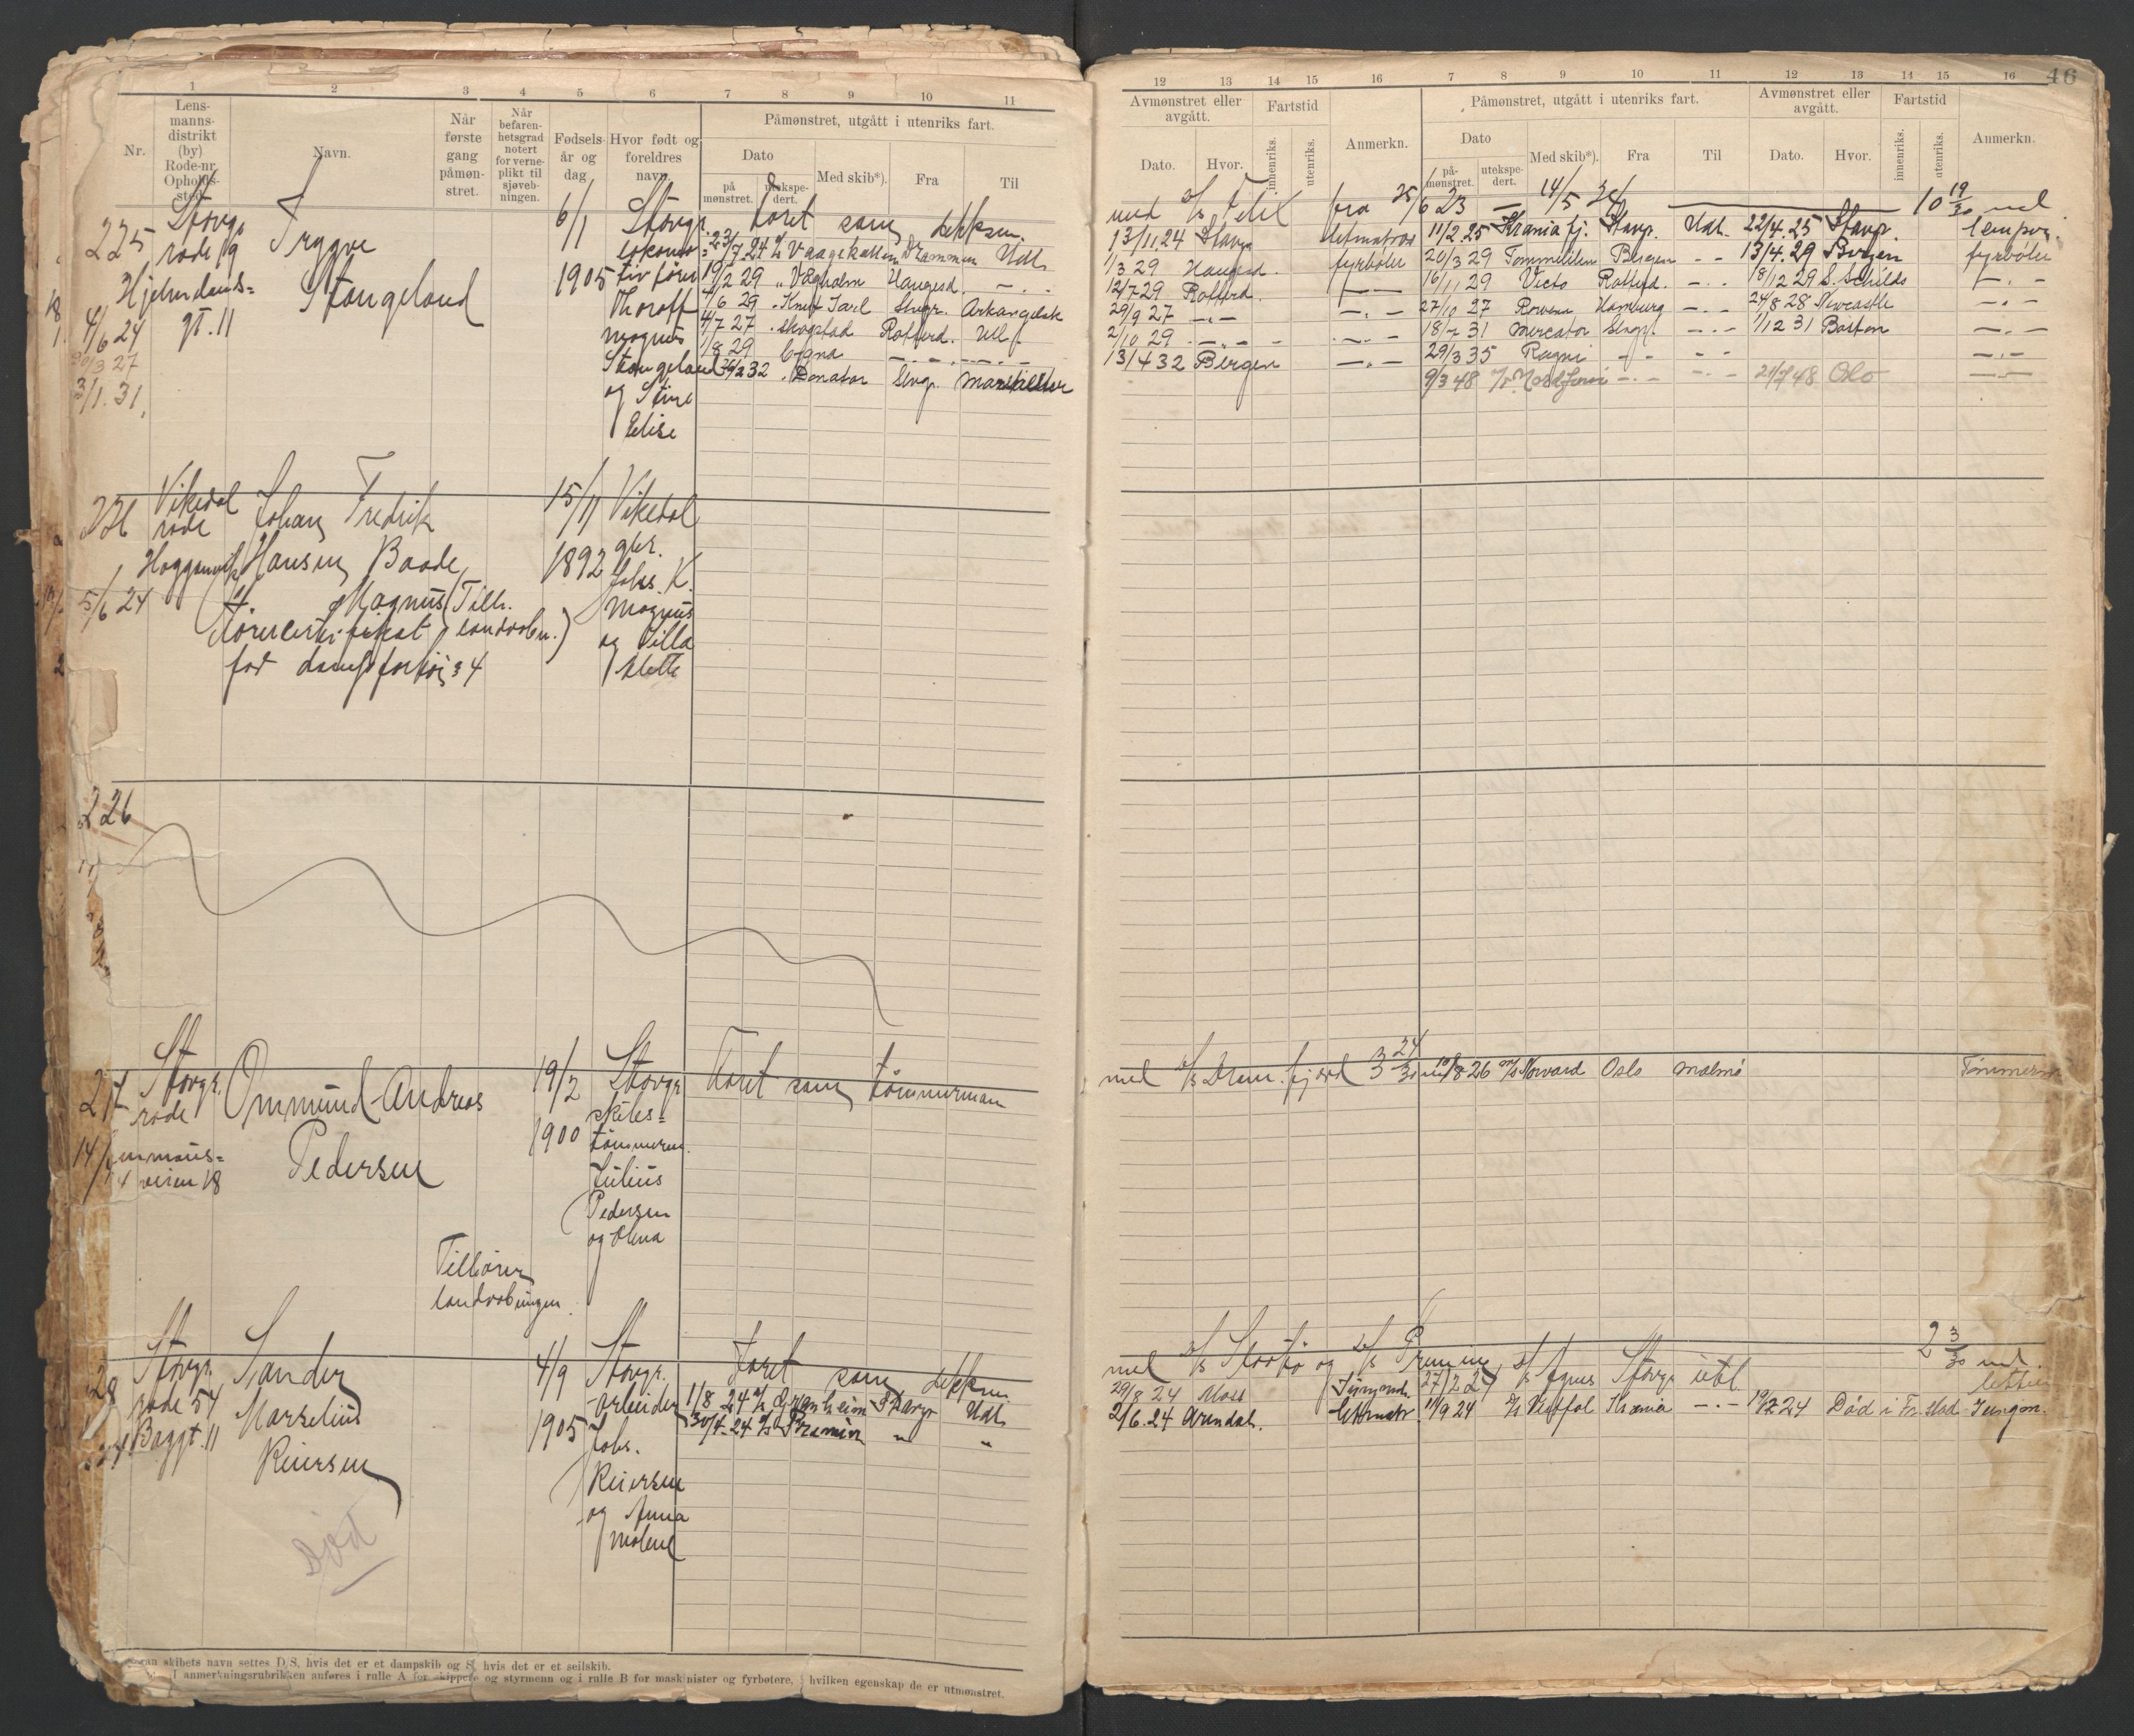 46
1 2 3 4 5 6 7 8 9 10 11
Nr.
Lens-
manns-
distrikt
(by)
Rode-nr.
Opholds-
sted.
Navn.
Når
første
gang
påmøn-
stret.
Når
befaren-
hetsgrad
notert
for verne-
plikt til
sjøveb-
ningen.
Fødsels-
år og
dag.
Hvor født og
foreldres
navn.
Påmønstret, utgått i utenriks fart.
Dato
på
mønstret.
utekspe-
dert.
Med skib*).
Fra
Til
225 Stavgr. rode 19
Hjelmelands=
gt. 11
4/6 24
20/3 27
3/1. 31
Trygve
Stangeland
6/1
1905
Stavgr.
lokomo=
tivfører
Thoralf
Magnus
Stangeland
og Stine
Elise
Faret som dekksm.
23/7 24 Vaagekallen Drammen Utl.
19/2 29 Haugesd. - . -
4/6 29 Knut Jarl Stvgr. Arkangelsk
4/7 27 Skogstad Rotterd. Utl.
1/8 29 Cygna - . - - . -
26/2 32 Donator Stvgr.
226 Vikedal
rode
5/6 24
Johan Fredrik
Hansen Baade
Magnus (Tilh.
landvebn.)
15/11
1892
Vikedal
gbr.
Johs. K.
Magnus
og
for dampfartøi 34
226
Stavgr.
rode
Ommund Andreas
Pedersen
19/2
1900
Stavgr
skibs=
tømmerm.
Julius
Pedersen
og Olena
Faret som tømmerman
Tilhører
landvebningen.
28 Stavgr.
rode 54
Baggt. 11
Sander
Marselius
Reiersen
Død
4/9
1905
Stavgr.
arbeider
Johs.
Reiersen
og Anna
Malene
Faret som dekksm.
1/8 24 Stavgr Utl.
30/4-24 " "
foran skibets navn settes D/S, hvis det er et dampskib og S/ hvis det er et seilskib.
I anmerkningsrubrikken anføres i rulle A for skippere og styrmenn og i rulle B for maskinister og fyrbøtere, i hvilken egenskap de er utmønstret.
12 13 14 15 16 7 8 9 10 11 12 13 14 15 16
Avmønstret eller
avgått.
Dato.
Hvor.
Fartstid
innenriks.
utenriks.
Anmerkn.
Påmønstret, utgått i utenriks fart.
Dato
på-
mønstret.
utekspe-
dert.
Med skib*).
Fra
Til
Avmønstret eller
avgått.
Dato.
Hvor.
Fartstid
innenriks.
utenriks.
Anmerkn.
med fra 25/6 23 — 14/5 24 10 19/30 md.
13/11 24 Stavgr letmatros 11/2 25 Kraniafj. Stavgr. Utl. 22/4. 25 Stavgr. lempor.
1/3 29 Haugesd. fyrbøter 20/3 29 Tommeliten Bergen - - 13/4. 29 Bergen fyrbøter
12/7 29 Rotterd. — - — 16/11 29 Victo Rotterd. - . - 18/12 29 S. Schilds - . -
29/9 27 - . - - . - 27/10 27 Rowena Hamburg - . - 24/8 28 Newcastle - . -
2/10 29 - . - - . - 18/2 31 Mercator Stvgr. - . - 1/12 31 Boston - . -
13/4 32 Bergen - . - 29/3 35 Ragni - - - - - . -
9/3 48 - . - - . - 21/7 48 Oslo - . -
med Dram.fjord 3 24/30 md 10/8 26 Norvard Oslo Malmø Tømmerm
med og 2 3/30 md.
29/8 24 Moss Jungmd. 27/2 24 Agnes Stavgr utl. letm
2/6. 24 Arendal. letmatr 11/9 24 Vestfol Krania - . - 19/12 24 Død i Fr.stad Jungm.